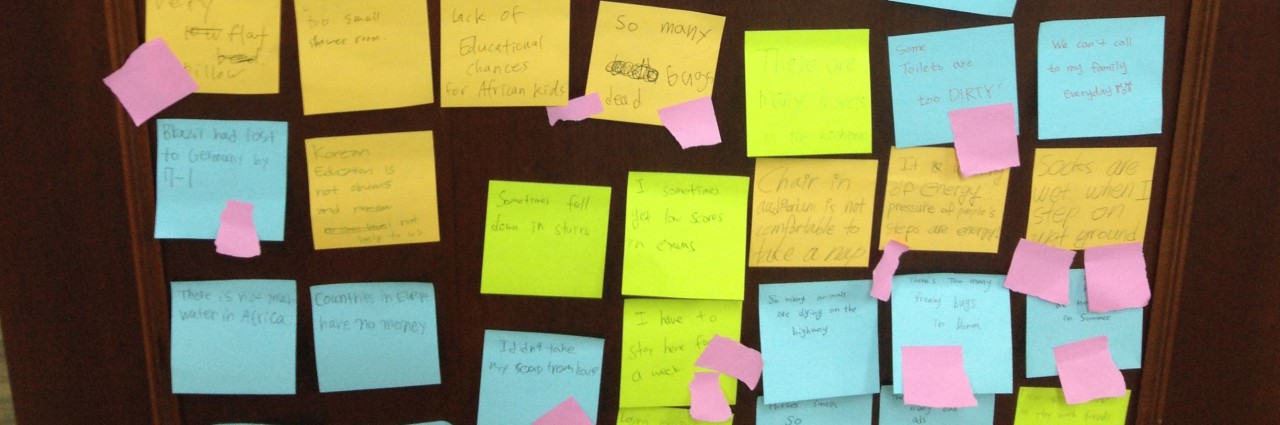 very
flat
pillow
too small
shower room.
lack of
Educational
chances
for African kids
So many
bugs
dead
There are
many
in the
Some
Toilets are
too DIRTY!
We can't call
to my family
Everyday
Brazil had lost
to Germany by
7-1
Korean
Education is
not
and
not
help to us
Sometimes fall
down in stairs
I sometimes
get low scores
in exams
Chair in
auditorium is not
comfortable to
take a nap
It is
of energy
pressure of people's
steps are energy.
Socks are
wet when I
step on
wet ground
There is not
water in Africa
Countries in
have no money
I didn't take
my soap from
I have to
stay here for
a week
So many animals
are dying on the
highway
There's Too many
freaky bugs
in
in Summer
So